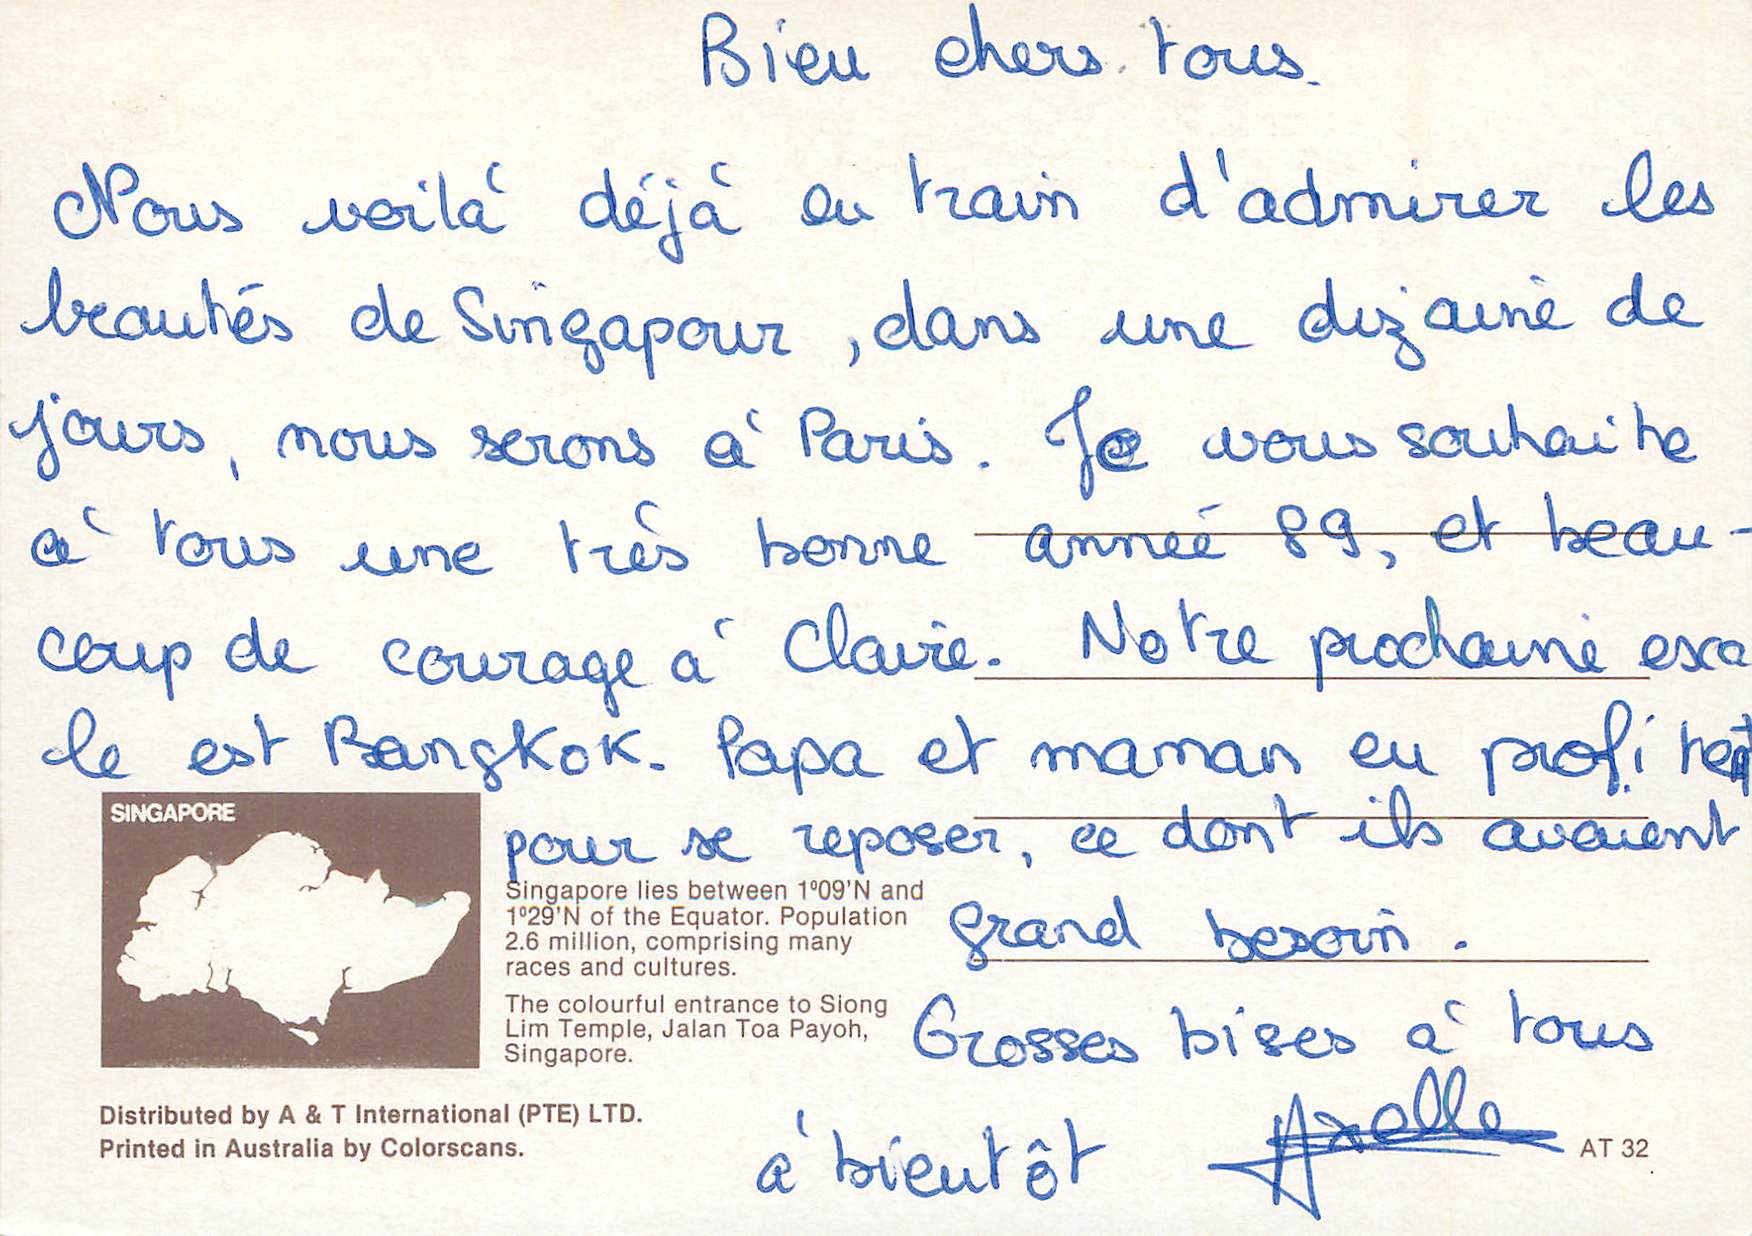 Bien chers tous.
Nous voilà déjà en train d'admirer les
beautés de Singapour, dans une dizaine de
jours, nous serons à Paris. Je vous souhaite
à tous une très bonne année 89, et beau-
coup de courage à Claire. Notre prochaine esca
le est Bangkok. Papa et maman en profitent
pour se reposer, ce dont ils avaient
grand besoin.
Grosses bises à tous
à bientôt Axelle
SINGAPORE
Singapore lies between 1°09'N and
1°29'N of the Equator. Population
2.6 million, comprising many
races and cultures.
The colourful entrance to Siong
Lim Temple, Jalan Toa Payoh,
Singapore.
Distributed by A & T International (PTE) LTD.
Printed in Australia by Colorscans.
AT 32